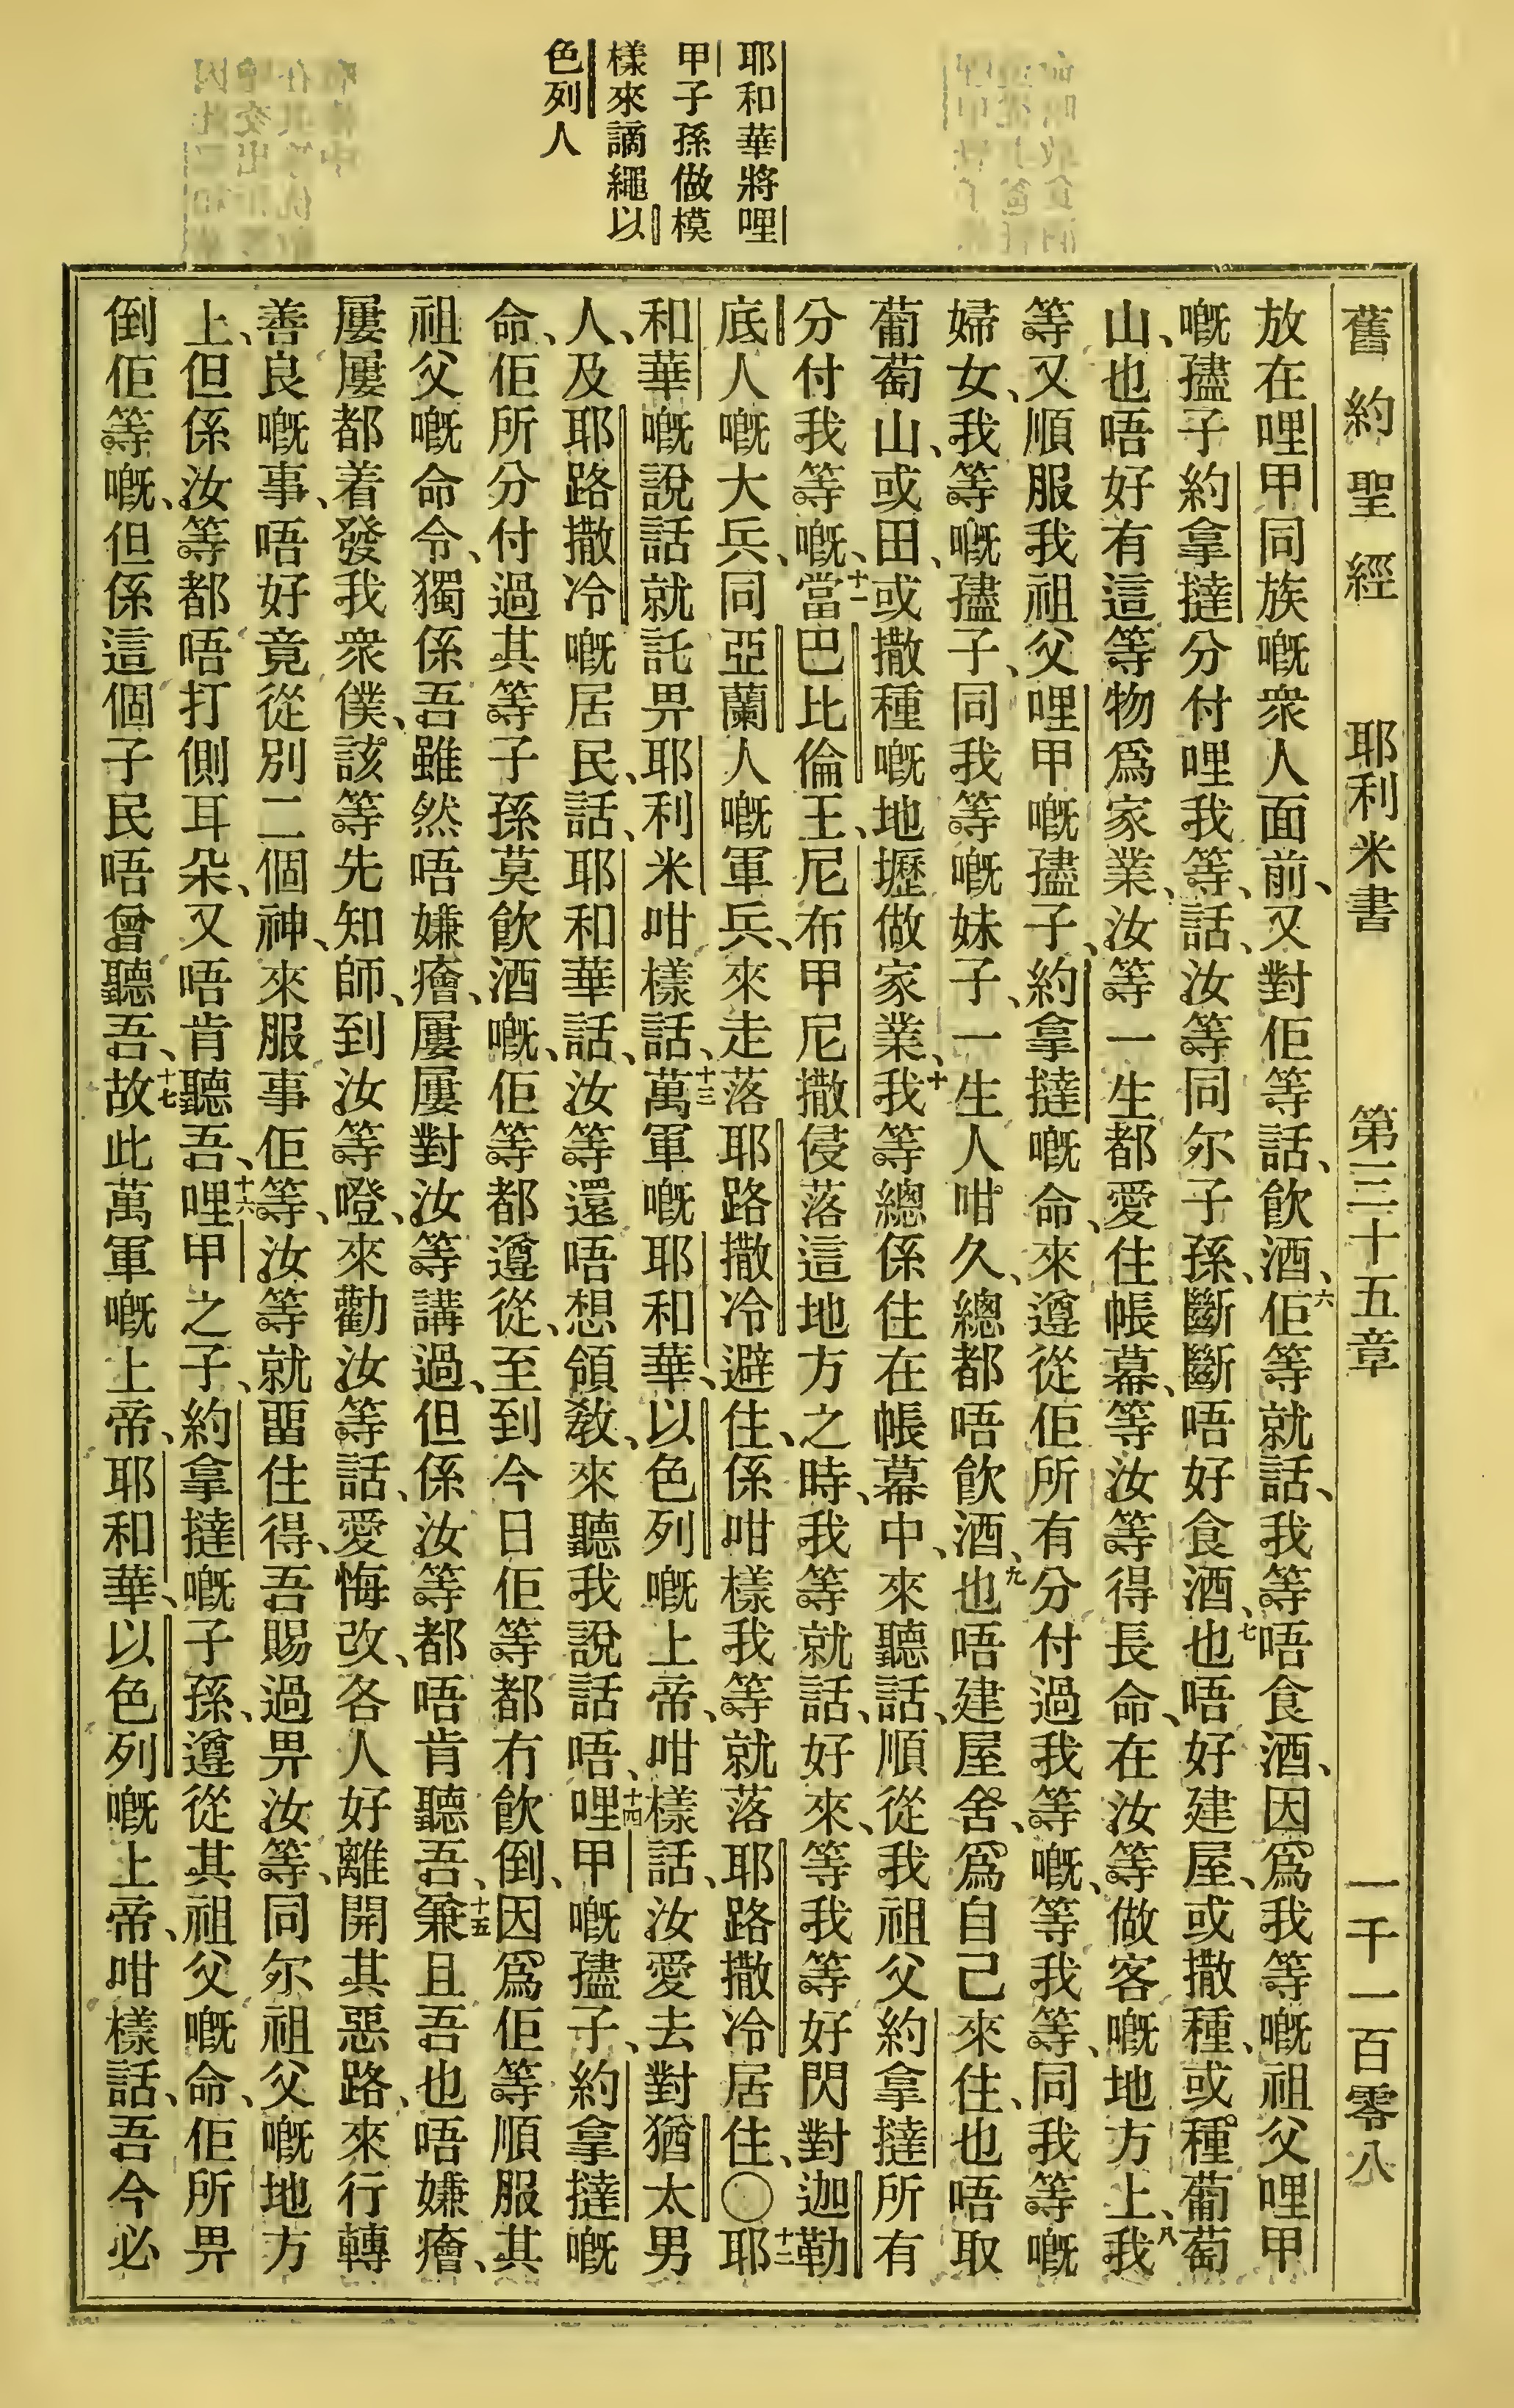 耶和華將哩
甲子孫做模
樣來謫繩以
色列人
舊約聖經 耶利米書 第三十五章 一千一百零八
放在哩甲同族嘅衆人面前、又對佢等話、飲酒、六佢等就話、我等唔食酒、因爲我等嘅祖父哩甲
嘅𧝞子約拿撻分付哩我等、話、汝等同尔子孫、斷斷唔好食酒、七也唔好建屋、或撒種、或種葡萄
山、也唔好有這等物爲家業、汝等一生都愛住帳幕、等汝等得長命、在汝等做客嘅地方上、八我
等又順服我祖父哩甲嘅孻子、約拿撻嘅命、來遵從佢所有分付過我等嘅、等我等、同我等嘅
婦女、我等嘅孻子、同我等嘅妹子、一生人咁久、總都唔飲酒、九也唔建屋舍、爲自己來住、也唔取
葡萄山、或田、或撒種嘅地壢做家業、十我等總係住在帳幕中、來聽話、順從我祖父約拿撻所有
分付我等嘅、十一當巴比倫王、尼布甲尼撒侵落這地方之時、我等就話、好來、等我等好閃對迦勒
底人嘅大兵、同亞蘭人嘅軍兵、來走落耶路撒冷避住、係咁樣我等就落耶路撒冷居住、〇十二耶
和華嘅說話就託畀耶利米咁樣話、十三萬軍嘅耶和華、以色列嘅上帝、咁樣話、汝愛去對猶太男
人、及耶路撒冷嘅居民、話、耶和華話、汝等還唔想領教、來聽我說話唔、十四哩甲嘅孻子、約拿撻嘅
命、佢所分付過其等子孫莫飲酒嘅、佢等都遵從、至到今日佢等都冇飲倒、因爲佢等順服其
祖父嘅命令、獨係吾雖然唔嫌癐、屢屢對汝等講過、但係汝等都唔肯聽吾、十五兼且吾也唔嫌癐、
屢屢都着發我衆僕、該等先知師、到汝等嶝、來勸汝等話、愛悔改、各人好離開其惡路、來行轉
善良嘅事、唔好竟從別二個神、來服事佢等、汝等就畱住得、吾賜過畀汝等、同尔祖父嘅地方
上、但係汝等都唔打側耳朵、又唔肯聽吾、十六哩甲之子、約拿撻嘅子孫、遵從其祖父嘅命、佢所畀
倒佢等嘅、但係這個子民唔曾聽吾、十七故此萬軍嘅上帝、耶和華、以色列嘅上帝、咁樣話、吾今必